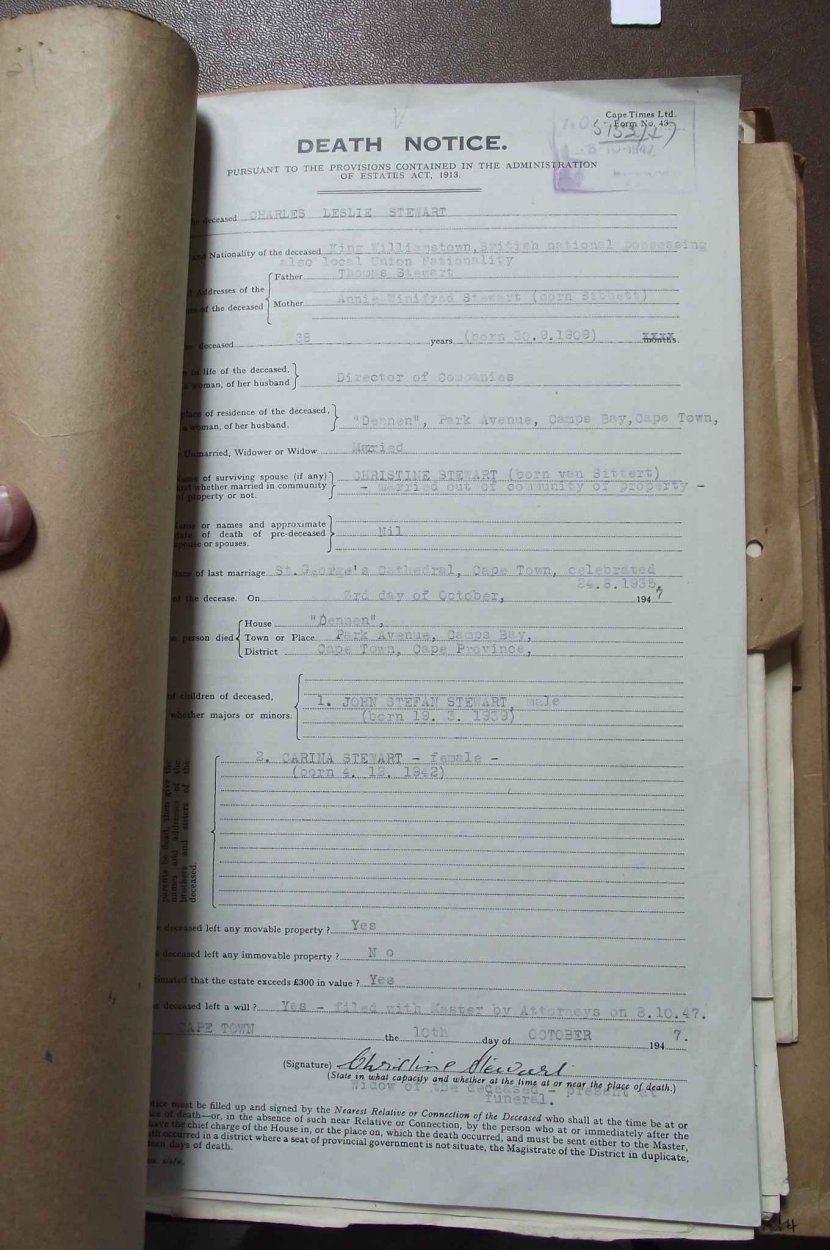 Cape Times Ltd.
Form No. 43
5132/47
DEATH NOTICE.
PURSUANT TO THE PROVISIONS CONTAINED IN THE ADMINISTRATION
OF ESTATES ACT, 1913.
deceased CHARLES LESLIE STEWART
and Nationality of the deceased King Williamstown, British national possessing
also local Union Nationality
Father Thomas Stewart
Addresses of the
of the deceased
Mother Annie Winifred Stewart (born Sibbett)
deceased 38 years (born 30.9.1909) xxxx months.
in life of the deceased,
woman, of her husband
Director of Companies
place of residence of the deceased,
woman, of her husband.
"Dennen", Park Avenue, Camps Bay, Cape Town,
Unmarried, Widower or Widow Married
Name of surviving spouse (if any)
and whether married in community
of property or not.
CHRISTINE STEWART (born van Sittert)
- married out of community of property -
Name or names and approximate
date of death of pre-deceased
spouse or spouses.
Nil
Place of last marriage St. George's Cathedral, Cape Town, celebrated
24.8.1935,
of the decease. On 3rd day of October, 1947
House "Dennen",
person died Town or Place Park Avenue, Camps Bay,
District Cape Town, Cape Province,
of children of deceased,
whether majors or minors.
1. JOHN STEFAN STEWART, male
(born 19. 3. 1939)
2. CARINA STEWART - female -
(born 4. 12. 1942)
parents be dead, then give the
names and addresses of the
brothers and sisters of the
deceased.
deceased left any movable property ? Yes
deceased left any immovable property ? No
estimated that the estate exceeds £300 in value ? Yes
deceased left a will ? Yes - filed with Master by Attorneys on 8.10.47.
CAPE TOWN the 10th day of OCTOBER 1947.
(Signature) Christine Stewart
(State in what capacity and whether at the time at or near the place of death.)
Widow of the deceased - present at
funeral.
must be filled up and signed by the Nearest Relative or Connection of the Deceased who shall at the time be at or
of death—or, in the absence of such near Relative or Connection, by the person who at or immediately after the
have the chief charge of the House in, or the place on, which the death occurred, and must be sent either to the Master,
occurred in a district where a seat of provincial government is not situate, the Magistrate of the District in duplicate,
days of death.